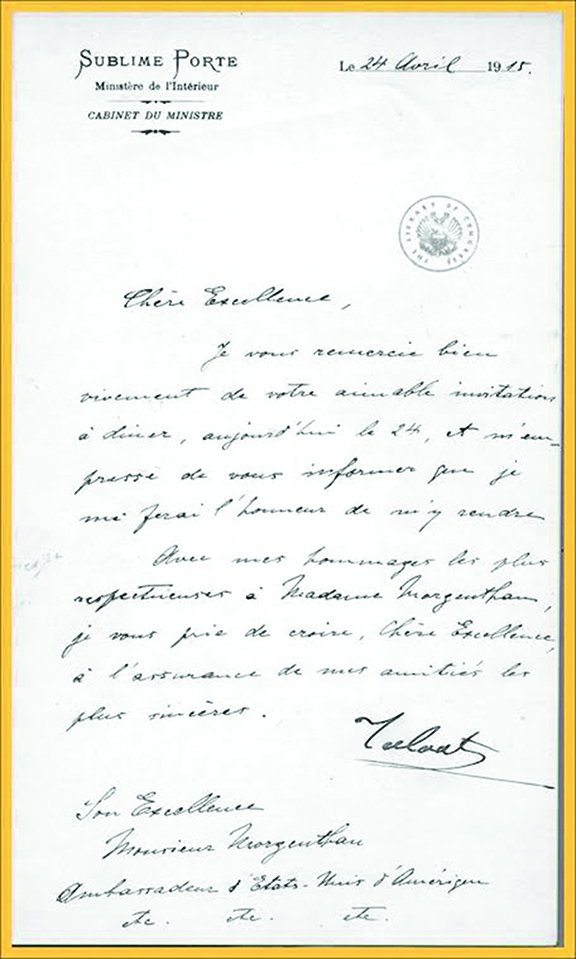 SUBLIME PORTE
Ministère de l'Intérieur
CABINET DU MINISTRE
Le 24 Avril 1915.
THE LIBRARY OF CONGRESS
Chère Excellence,
Je vous remercie bien
vivement de votre aimable invitation
à diner, aujourd'hui le 24, et m'em-
presse de vous informer que je
me ferai l'honneur de m'y rendre
Avec mes hommages les plus
respectueuses à Madame Morgenthau,
je vous prie de croire, Chère Excellence,
à l'assurance de mes amitiés les
plus sincères.
Talaat
Son Excellence
Monsieur Morgenthau
Ambassadeur d'Etats-Unis d'Amérique
etc. etc. etc.